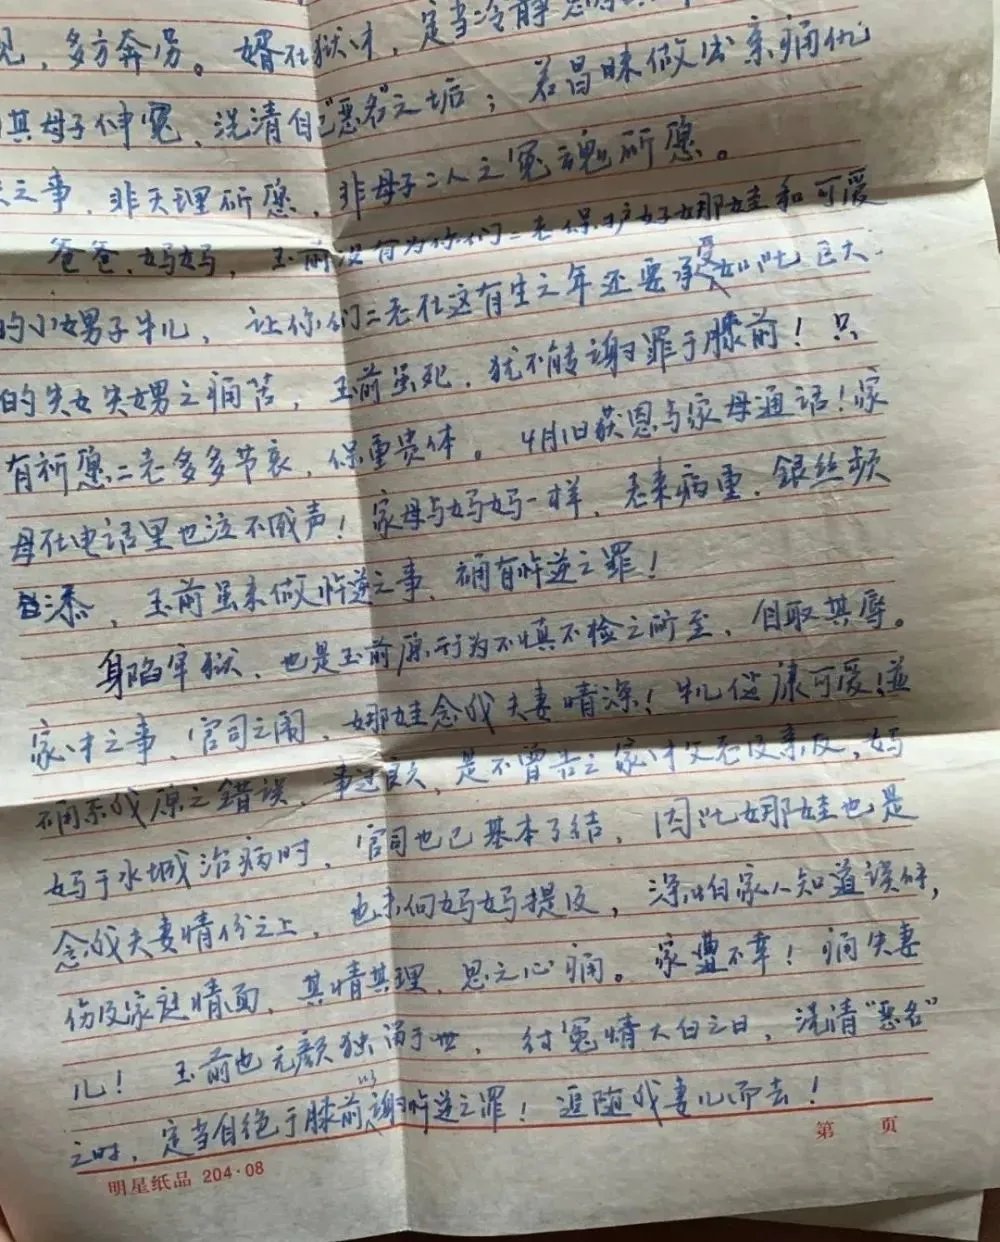 见，多方奔劳。婿在狱中，定当冷静
其母子伸冤，洗清自己"恶名"之垢；若冒昧做出亲痛仇
之事，非天理所愿，非母子二人之冤魂所愿。
爸爸、妈妈，玉前没有为你们二老保护好娜娃和可爱
的小甥子牛儿，让你们二老在这有生之年还要承受如此巨大
的失女失甥之痛苦，玉前虽死，犹不能谢罪于膝前！只
有祈愿二老多多节哀，保重贵体。4月1日获恩与家母通话！家
母在电话里也泣不成声！家母与妈妈一样，老来病重，银丝频
添，玉前虽未做忤逆之事，确有忤逆之罪！
身陷牢狱，也是玉前原行为不慎不检之所至，自取其辱。
家中之事、官司之闹，娜娃念我夫妻情深！牛儿健康可爱！并
确系我原之错误，事过良久，是不曾告之家中父老及亲友，妈
妈于水城治病时，官司也已基本了结，因此娜娃也是
念我夫妻情份之上，也未向妈妈提及，深怕家人知道误解，
伤及家庭情面，其情其理，思之心痛。家遭不幸！痛失妻
儿！玉前也无颜独活于世，待冤情大白之日，洗清"恶名"
之时，定当自绝于膝前，以谢忤逆之罪！追随我妻儿而去！
第 页
明星纸品 204·08